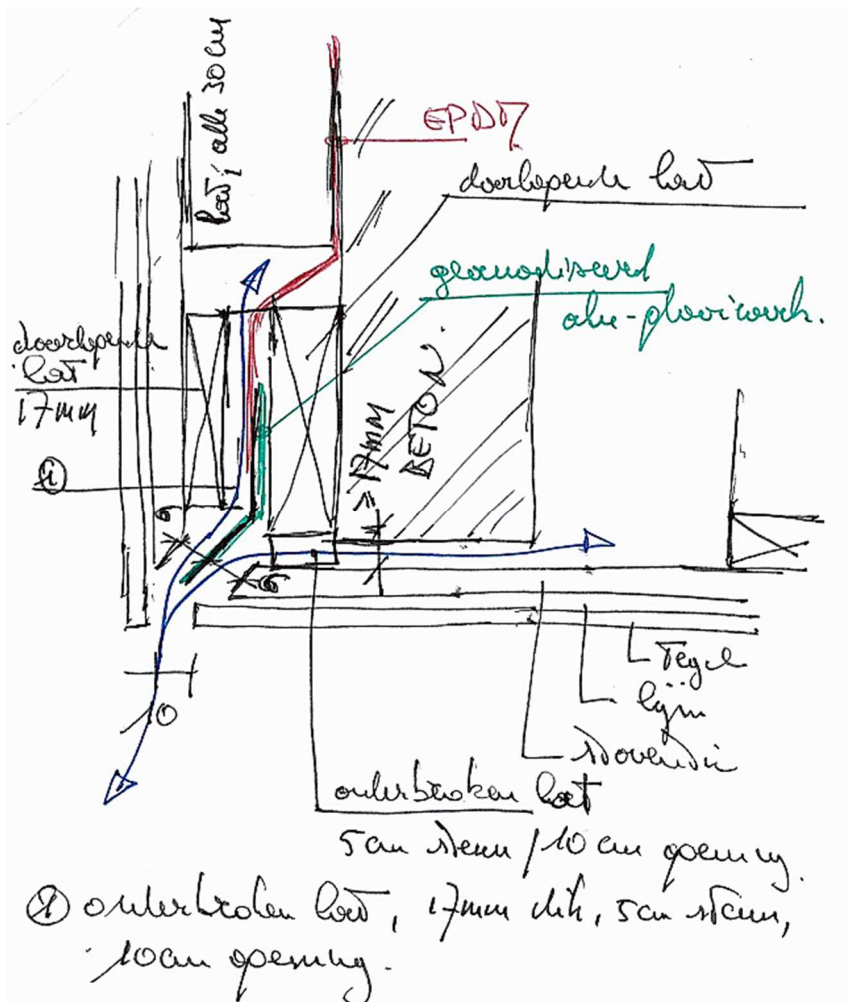 lat, alle 30 cm
EPDM
doorlopende lat
geanodiseerd
alu-plooiwerk.
doorlopende
lat
17mm
①
≥ 17mm
BETON.
6
6
10
Tegel
lijm
onderbroken lat
5cm steun / 10 cm opening.
① onderbroken lat, 17mm dik, 5cm steun,
10cm opening.